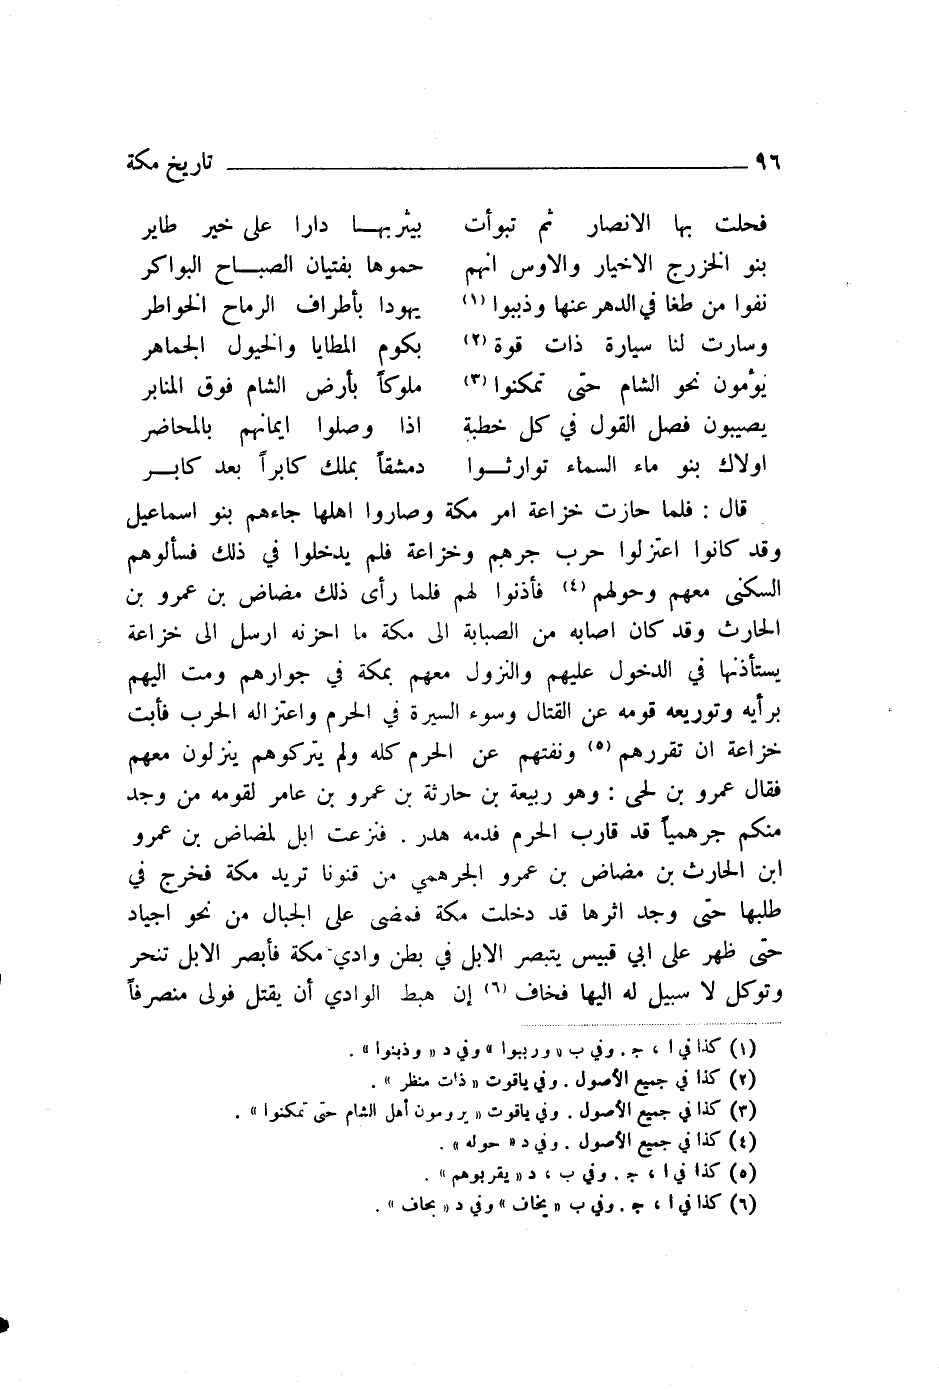 ٩٦ تاريخ مكة
فحلت بها الانصار ثم تبوأت بيثربهـــا دارا على خير طاير
بنو الخزرج الاخيار والاوس انهم حموها بفتيان الصبـــاح البواكر
نفوا من طغا في الدهر عنها وذببوا (١) يهودا بأطراف الرماح الخواطر
وسارت لنا سيارة ذات قوة (٢) بكوم المطايا والخيول الجماهر
يؤمون نحو الشام حتى تمكنوا (٣) ملوكاً بأرض الشام فوق المنابر
يصيبون فصل القول في كل خطبة اذا وصلوا ايمانهم بالمحاضر
اولاك بنو ماء السماء توارثـــوا دمشقاً بملك كابراً بعد كابـــر
قال : فلما حازت خزاعة امر مكة وصاروا اهلها جاءهم بنو اسماعيل
وقد كانوا اعتزلوا حرب جرهم وخزاعة فلم يدخلوا في ذلك فسألوهم
السكنى معهم وحولهم (٤) فأذنوا لهم فلما رأى ذلك مضاض بن عمرو بن
الحارث وقد كان اصابه من الصبابة الى مكة ما احزنه ارسل الى خزاعة
يستأذنها في الدخول عليهم والنزول معهم بمكة في جوارهم ومت اليهم
برأيه وتوريعه قومه عن القتال وسوء السيرة في الحرم واعتزاله الحرب فأبت
خزاعة ان تقررهم (٥) ونفتهم عن الحرم كله ولم يتركوهم ينزلون معهم
فقال عمرو بن لحى : وهو ربيعة بن حارثة بن عمرو بن عامر لقومه من وجد
منكم جرهمياً قد قارب الحرم فدمه هدر . فنزعت ابل لمضاض بن عمرو
ابن الحارث بن مضاض بن عمرو الجرهمي من قنونا تريد مكة فخرج في
طلبها حتى وجد اثرها قد دخلت مكة فمضى على الجبال من نحو اجياد
حتى ظهر على ابي قبيس يتبصر الابل في بطن وادي مكة فأبصر الابل تنحر
وتوكل لا سبيل له اليها فخاف (٦) إن هبط الوادي أن يقتل فولى منصرفاً
(١) كذا في ا ، ج . وفي ب « ورببوا » وفي د « وذبنوا » .
(٢) كذا في جميع الأصول . وفي ياقوت « ذات منظر » .
(٣) كذا في جميع الأصول . وفي ياقوت « يرومون أهل الشام حتى تمكنوا » .
(٤) كذا في جميع الأصول . وفي د « حوله » .
(٥) كذا في ا ، ج . وفي ب ، د « يقربوهم » .
(٦) كذا في ا ، ج . وفي ب « يخاف » وفي د « بحاف » .